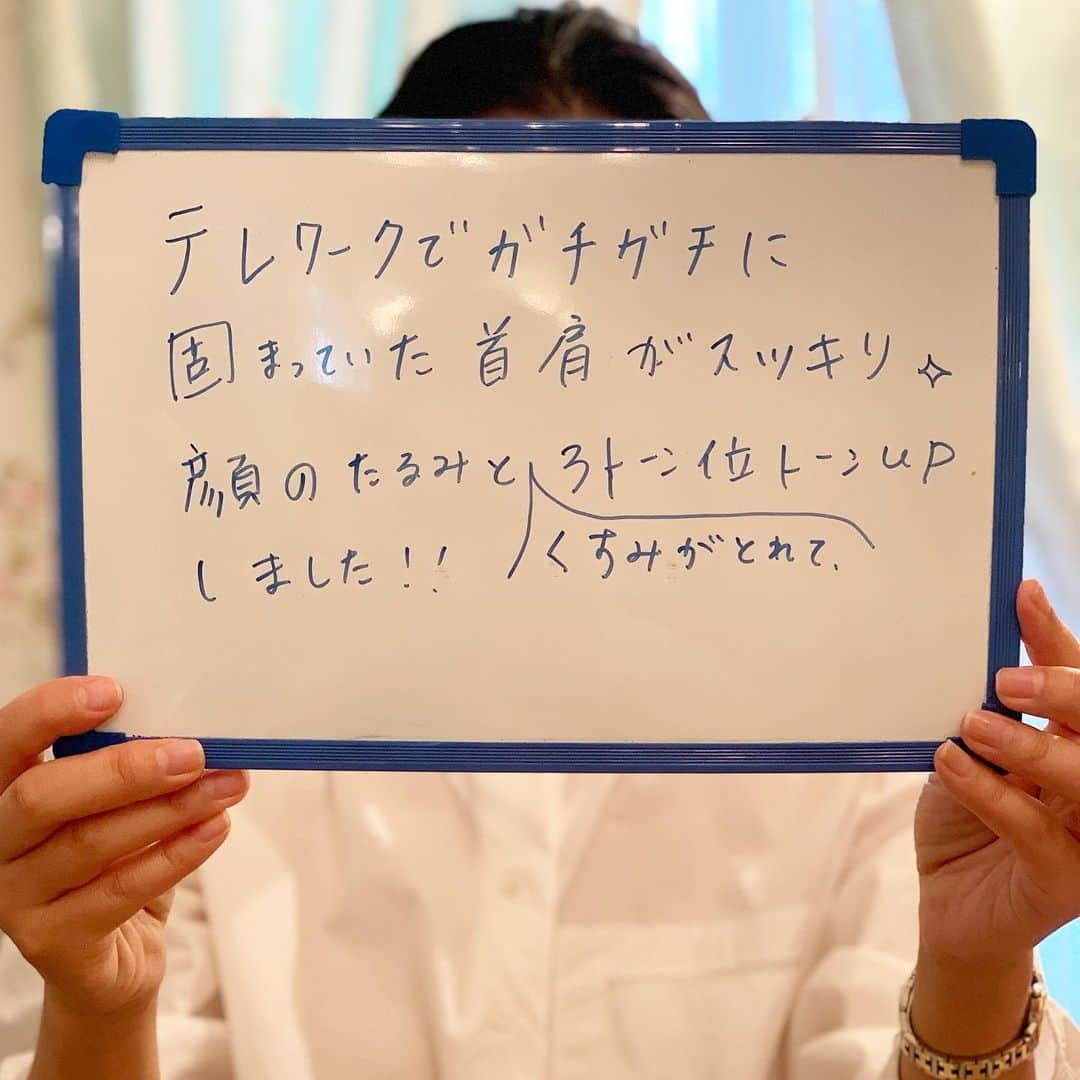 テレワークでガチガチに
固まっていた首肩がスッキリ✧
顔のたるみと3トーン位トーンUP
くすみがとれて、
しました!!